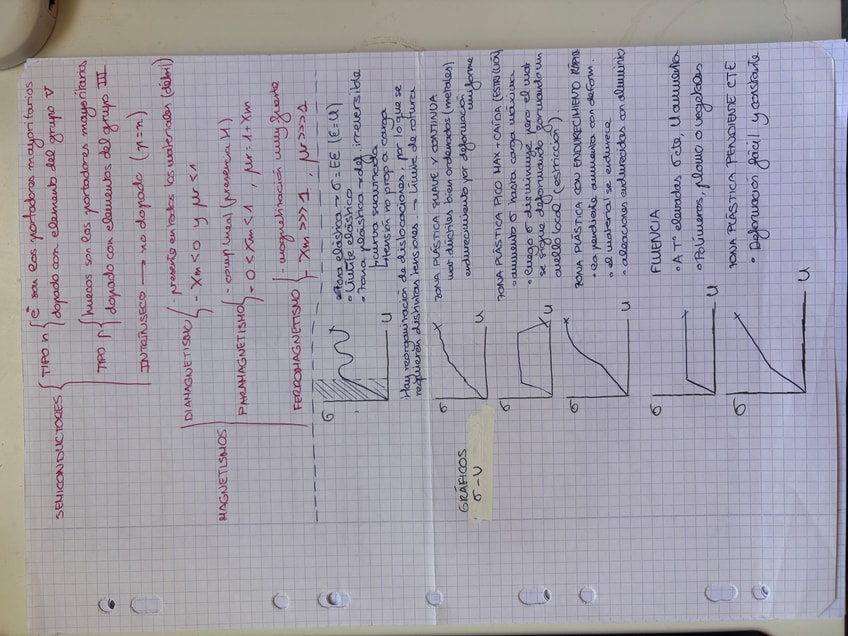 SEMICONDUCTORES
TIPO n
ē son los portadores mayoritarios
dopado con elemento del grupo V
TIPO p
huecos son los portadores mayoritarios
dopado con elementos del grupo III
INTRÍNSECO → no dopado (p=n)
MAGNETISMOS
DIAMAGNETISMO
- presente en todos los materiales (débil)
- Xm < 0 y μr < 1
PARAMAGNETISMO
- comp lineal (presencia H)
- 0 < Xm < 1 , μr = 1 + Xm
FERROMAGNETISMO
- magnetización muy fuerte
- Xm >>> 1 , μr >>>> 1
GRÁFICOS
σ - U
σ
U
• Zona elástica → σ = EE (E=U)
• Límite elástico
• Zona plástica → def. irreversible
curva suavizada
tensión no prop a carga
Hay reorganización de dislocaciones, por lo que se
requieren distintas tensiones. → Límite de rotura
σ
U
ZONA PLÁSTICA SUAVE Y CONTINUA
mat dúctiles bien ordenados (metales)
endurecimiento por deformación uniforme
σ
U
ZONA PLÁSTICA PICO MAX + CAÍDA
• aumenta σ hasta carga máxima
• luego σ disminuye pero el mat
se sigue deformando formando un
cuello local (estricción).
σ
U
ZONA PLÁSTICA CON ENDURECIMIENTO RÁPIDO
• La pendiente aumenta con deform.
• el material se endurece
• aleaciones endurecidas con aluminio
σ
U
FLUENCIA
• A Tª elevadas σ cte, U aumenta
• Polímeros, plomo o vegetales
σ
U
ZONA PLÁSTICA PENDIENTE CTE
• Deformación fácil y constante